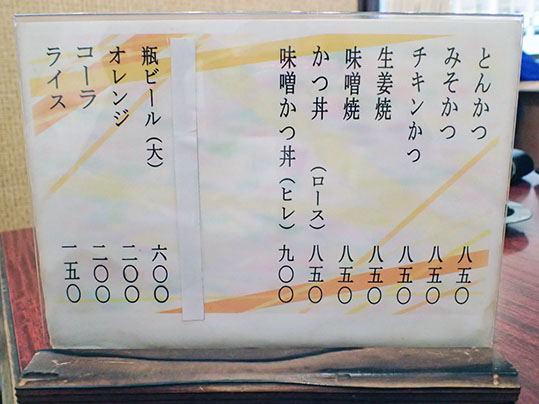 とんかつ 八五〇
みそかつ 八五〇
チキンかつ 八五〇
生姜焼 八五〇
味噌焼 八五〇
かつ丼 (ロース) 八五〇
味噌かつ丼(ヒレ) 九〇〇
瓶ビール(大) 六〇〇
オレンジ 二〇〇
コーラ 二〇〇
ライス 一五〇